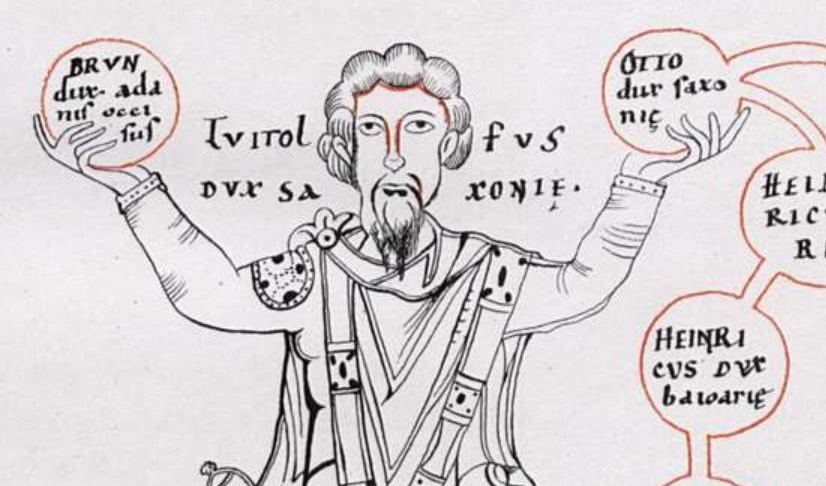 BRVN
dux a da
nis occi
sus
LVITOL FVS
DVX SAXONIĘ.
OTTO
dux saxo
nię
HEINRI
CVS DVX
baioarię
HEI
RIC
R